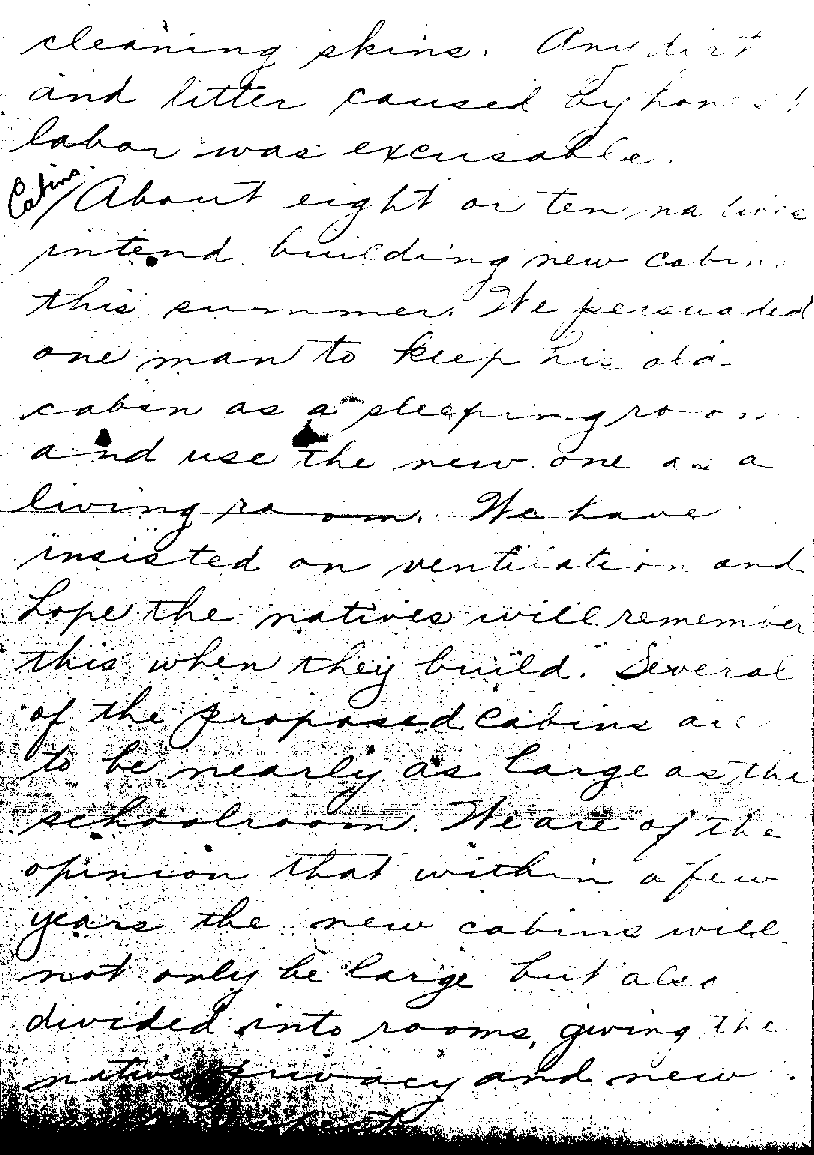 cleaning skins. Any dirt
and litter caused by honest
labor was excusable.
Cabins. / About eight or ten natives
intend building new cabins
this summer. We persuaded
one man to keep his old
cabin as a sleeping room
and use the new one as a
living room. We have
insisted on ventilation and
hope the natives will remember
this when they build. Several
of the proposed cabins are
to be nearly as large as the
schoolroom. We are of the
opinion that within a few
years the new cabins will
not only be large but also
divided into rooms, giving the
native privacy and new